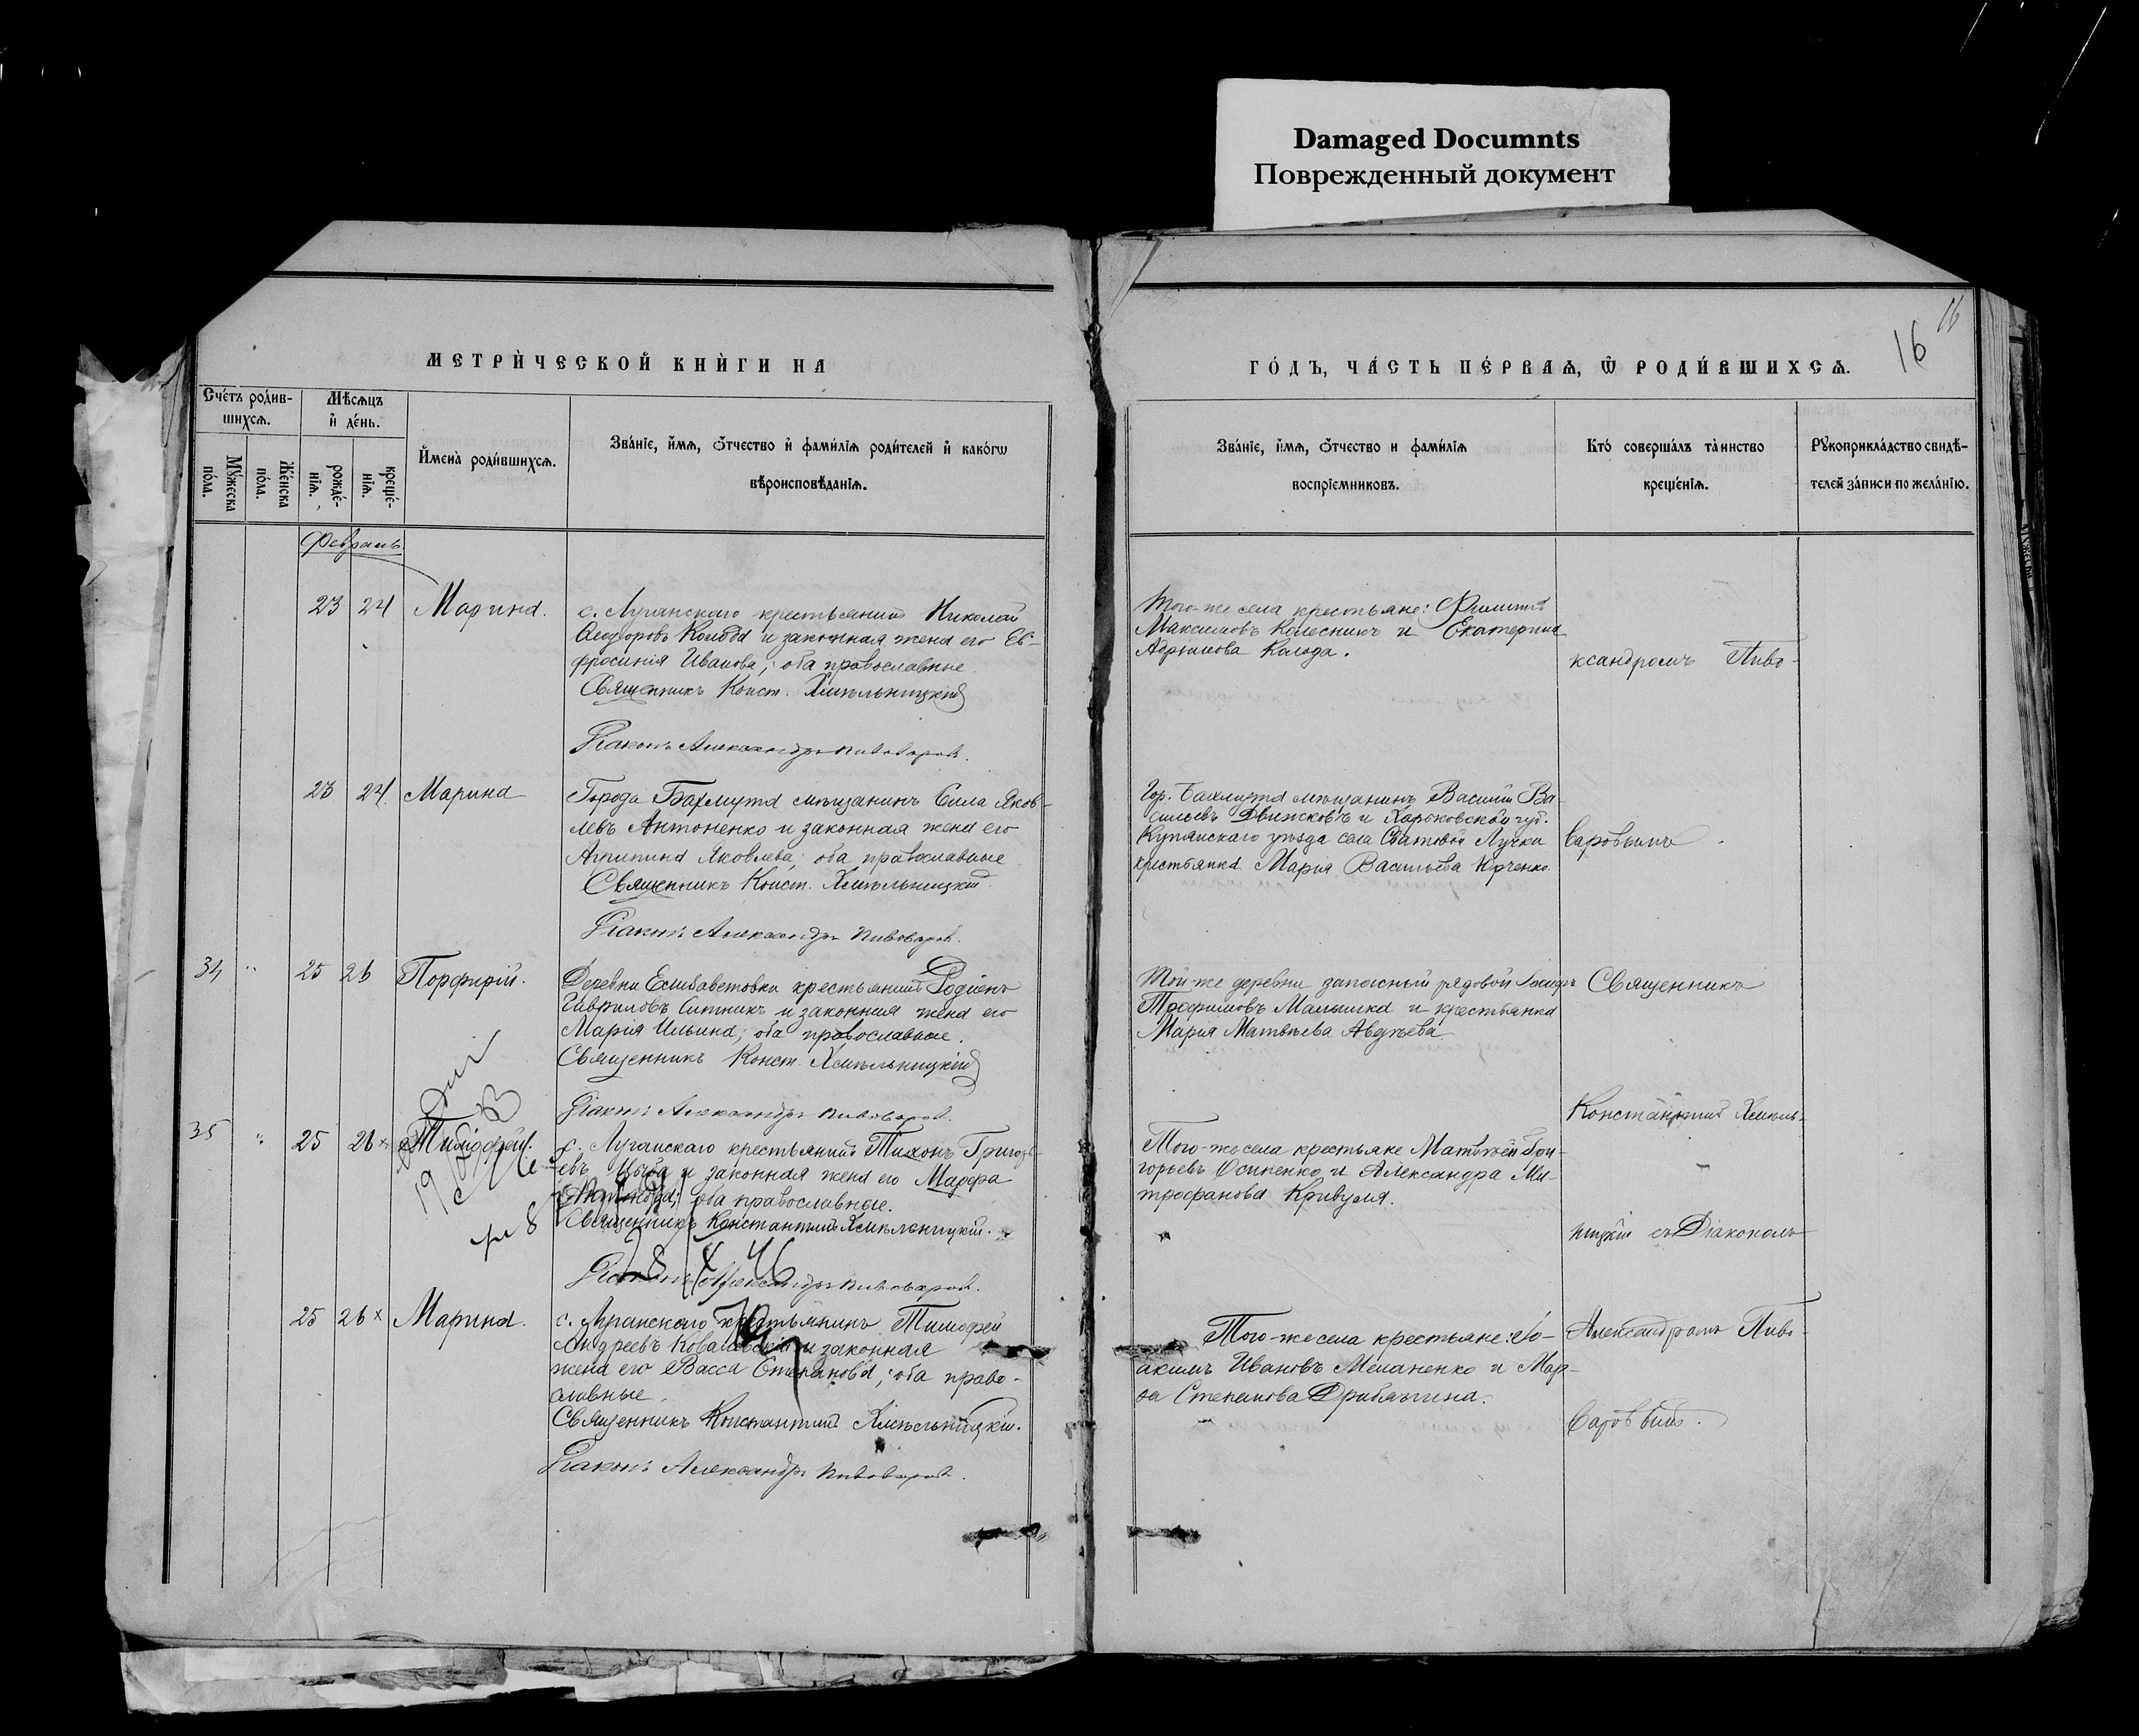 Damaged Documnts
Поврежденный документ
16
16
МЕТРИ́ЧЕСКОЙ КНИ́ГИ НА
ГО́ДЪ, ЧА́СТЬ ПЕ́РВАѦ, Ѡ҆ РОДИ́ВШИХСѦ.
Сче́тъ роди́в-
шихсѧ.
Мꙋ́жеска
по́ла.
Же́нска
по́ла.
Мѣ́сѧцъ
и҆ де́нь.
рожде́-
нїѧ.
креще́-
нїѧ.
И҆мена̀ роди́вшихсѧ.
Зва́нїе, и҆́мѧ, ѻ҆́тчество и҆ фами́лїѧ роди́телей и҆ како́гѡ
вѣроисповѣ́данїѧ.
Зва́нїе, и҆́мѧ, ѻ҆́тчество и фами́лїѧ
воспрїе́мниковъ.
Кто́ соверша́лъ та́инство
креще́нїѧ.
Рꙋкоприкла́дство свидѣ́-
телей за́писи по жела́нїю.
Февраль
23 24 Марина.
с. Луганскаго крестьянинъ Николай
Ѳеодоровъ Колода и законная жена его Ев-
фросинія Иванова; оба православные.
Священникъ Конст. Хмѣльницкій
Діаконъ Александръ Пивоваровъ.
Того-же села крестьяне: Филиппъ
Максимовъ Колесникъ и Екатерина
Колода.
ксандромъ Пиво-
23 24 Марина
Города Бахмута мѣщанинъ Сила Яков-
левъ Антоненко и законная жена его
Агрипина Яковлева; оба православные
Священникъ Конст. Хмѣльницкій.
Діаконъ Александръ Пивоваровъ.
Гор. Бахмута мѣщанинъ Василій Ва-
сильевъ Движковъ и Харьковской губ.
Купянскаго уѣзда села Сватовой Лучки
крестьянка Марія Васильева Юрченко.
варовымъ.
34 " 25 26 Порфирій.
Деревни Елисаветовки крестьянинъ Родіонъ
Гавриловъ Ситникъ и законная жена его
Марія Ильина; оба православные.
Священникъ Конст. Хмѣльницкій
Діаконъ Александръ Пивоваровъ.
Той-же деревни запасный рядовой
Трофимовъ Малышка и крестьянка
Мария Матвѣева Авдѣева.
Священникъ
Константинъ Хмѣль-
35 " 25 26 × Тимоѳей.
с. Луганскаго крестьянинъ Тихонъ Григорь-
евъ и законная жена его Марѳа
оба православные.
Священникъ Константинъ Хмѣльницкій.
Діаконъ Александръ Пивоваровъ.
Того-же села крестьяне Матвѣй Гри-
горьевъ Осипенко и Александра Ми-
трофанова Кривуля.
ницкій съ Діакономъ
19
8
8 X 46
25 26 × Марина.
с. Луганскаго крестьянинъ Тимоѳей
Андреевъ Ковалевскій и законная
жена его Васса Степанова; оба право-
славные.
Священникъ Константинъ Хмѣльницкій.
Діаконъ Александръ Пивоваровъ.
Того-же села крестьяне: Іо-
акимъ Ивановъ Меланенко и Мар-
ѳа Степанова Дрибязгина.
Александромъ Пиво-
варовымъ.